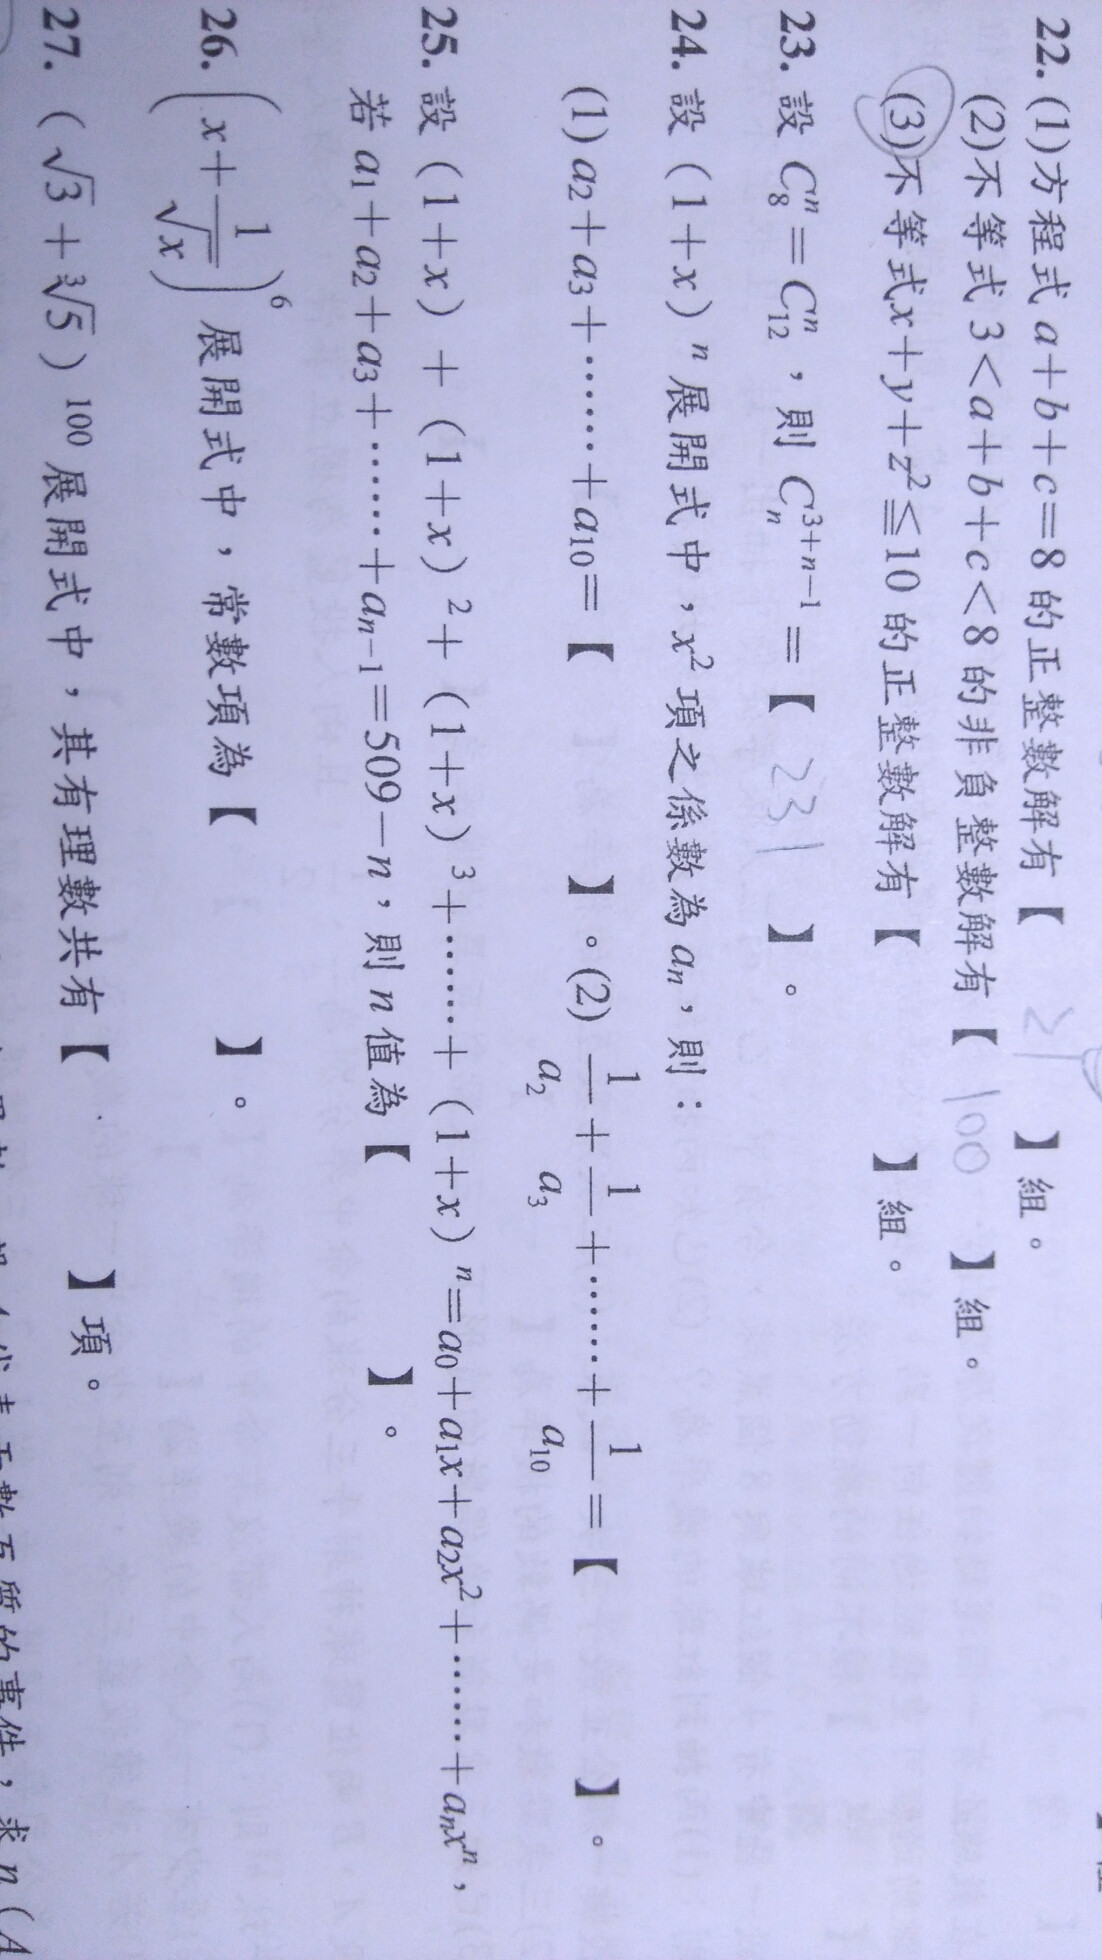 22. (1)方程式 a+b+c=8 的正整數解有【 21 】組。
(2)不等式 3<a+b+c<8 的非負整數解有【 100 】組。
(3)不等式x+y+z²≦10 的正整數解有【 】組。
23. 設 C₈ⁿ=C₁₂ⁿ,則 Cₙ³⁺ⁿ⁻¹=【 231 】。
24. 設(1+x)ⁿ展開式中,x²項之係數為 aₙ,則:
(1) a₂+a₃+……+a₁₀=【 】。(2) 1/a₂+1/a₃+……+1/a₁₀=【 】。
25. 設(1+x)+(1+x)²+(1+x)³+……+(1+x)ⁿ=a₀+a₁x+a₂x²+……+aₙxⁿ,
若 a₁+a₂+a₃+……+aₙ₋₁=509-n,則 n 值為【 】。
26. (x+1/√x)⁶ 展開式中,常數項為【 】。
27. (√3+∛5)¹⁰⁰展開式中,其有理數共有【 】項。
兩數互質的事件,求 n(A